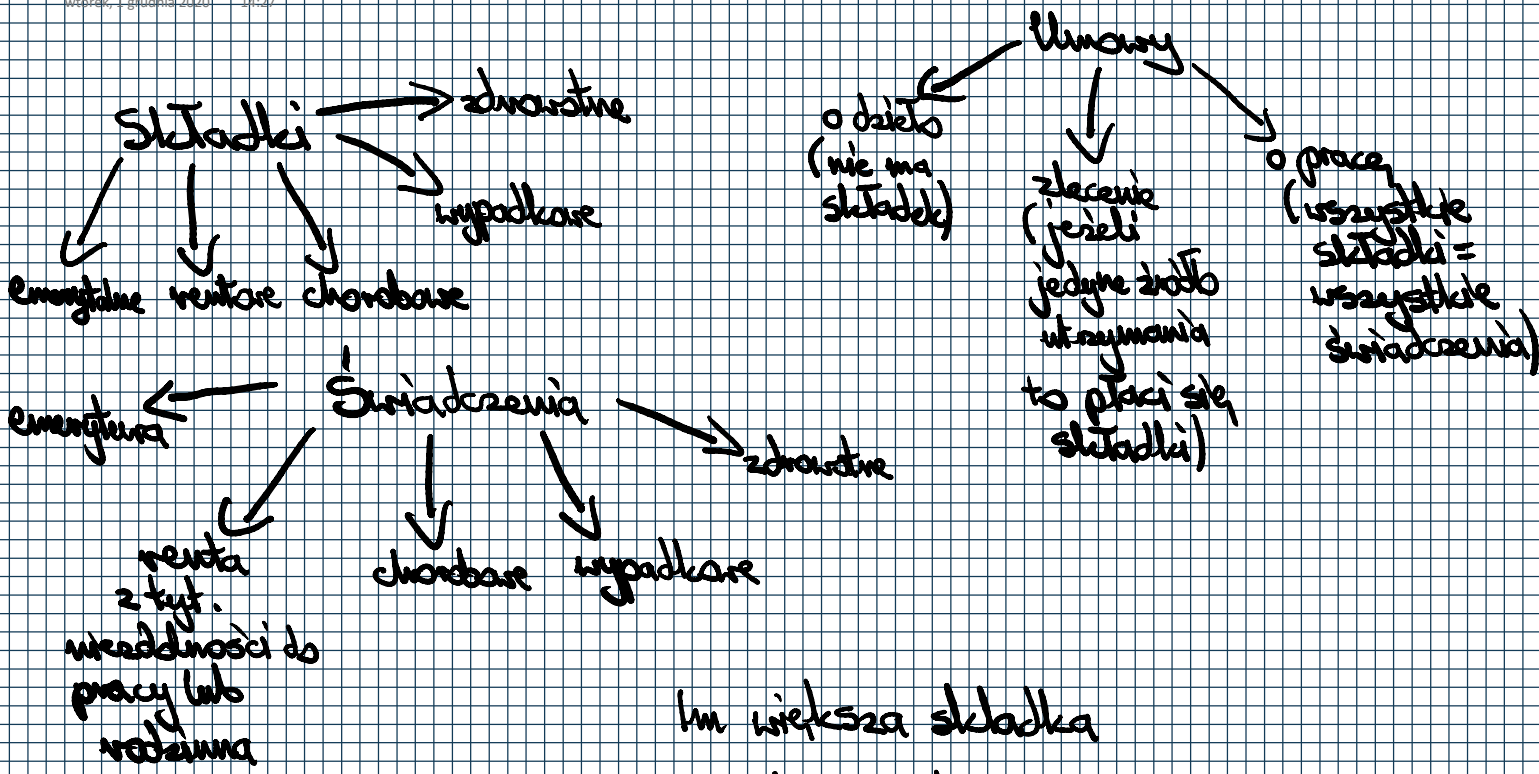 wtorek, 1 grudnia 2020 14:27
Składki
zdrowotne
wypadkowe
emerytalne
rentowe
chorobowe
Świadczenia
emerytura
renta
z tyt.
niezdolności do
pracy lub
rodzinna
chorobowe
wypadkowe
zdrowotne
Umowy
o dzieło
(nie ma
składek)
zlecenie
(jeżeli
jedyne źródło
utrzymania
to płaci się
składki)
o pracę
(wszystkie
składki =
wszystkie
świadczenia)
Im większa składka